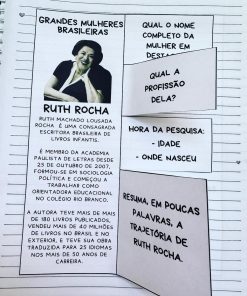 GRANDES MULHERES
BRASILEIRAS
RUTH ROCHA
RUTH MACHADO LOUSADA
ROCHA É UMA CONSAGRADA
ESCRITORA BRASILEIRA DE
LIVROS INFANTIS.
É MEMBRO DA ACADEMIA
PAULISTA DE LETRAS DESDE
25 DE OUTUBRO DE 2007,
FORMOU-SE EM SOCIOLOGIA
POLÍTICA E COMEÇOU A
TRABALHAR COMO
ORIENTADORA EDUCACIONAL
NO COLÉGIO RIO BRANCO.
A AUTORA TEVE MAIS DE MAIS
DE 180 LIVROS PUBLICADOS,
VENDEU MAIS DE 40 MILHÕES
DE LIVROS NO BRASIL E NO
EXTERIOR, E TEVE SUA OBRA
TRADUZIDA PARA 25 IDIOMAS
NOS MAIS DE 50 ANOS DE
CARREIRA.
QUAL O NOME
COMPLETO DA
MULHER EM
DESTA
QUAL A
PROFISSÃO
DELA?
HORA DA PESQUISA:
- IDADE
- ONDE NASCEU
RESUMA, EM POUCAS
PALAVRAS, A
TRAJETÓRIA DE
RUTH ROCHA.